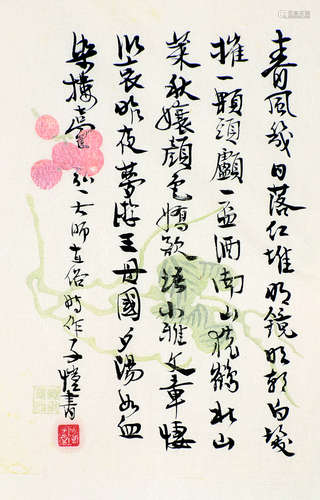 春風幾日落紅堆明鏡明朝白髮
摧一顆頭顱一盃酒南山猿鶴北山
萊秋孃顏色嬌欲語小雅文章悽
以哀昨夜夢游王母國夕陽如血
染樓臺 弘一大師在俗時作 子愷書